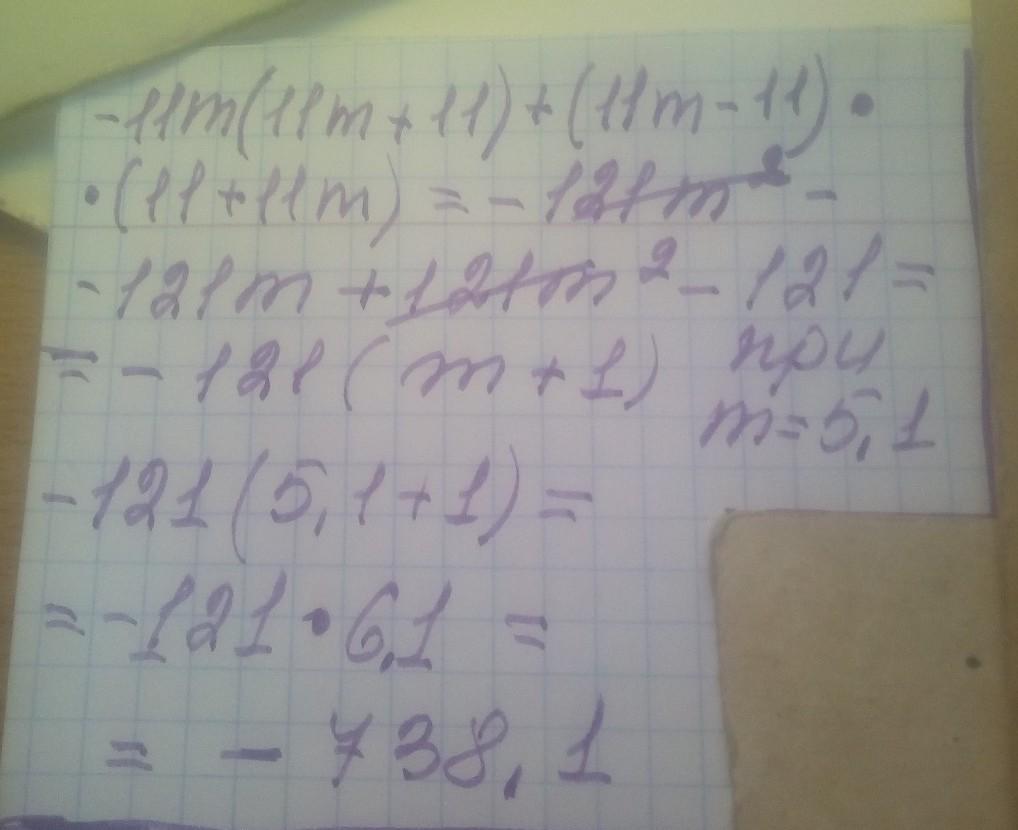 -11m(11m+11)+(11m-11)•
•(11+11m)=-121m²-
-121m+121m²-121=
=-121(m+1) при
m=5,1
-121(5,1+1)=
=-121•6,1=
=-738,1